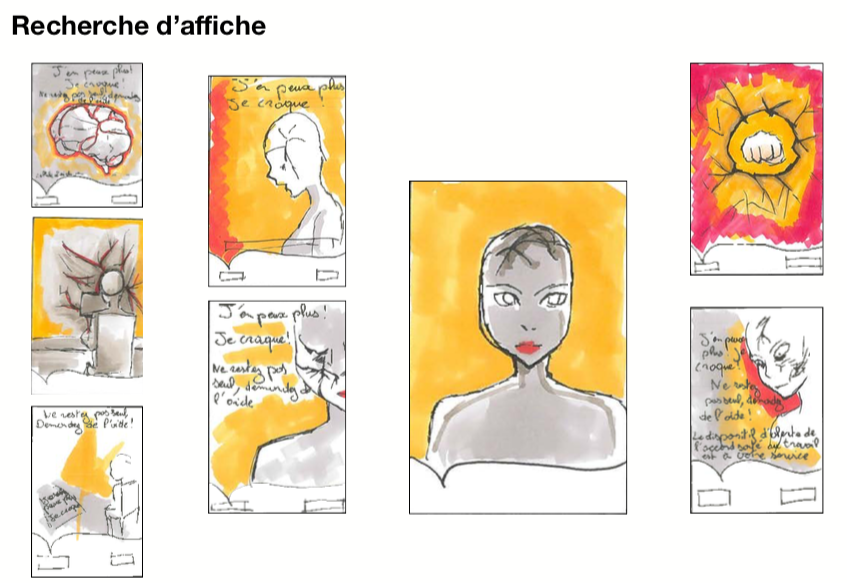 Recherche d'affiche
J'en peux plus!
Je craque!
Ne restez pas seul, demandez
de l'aide
Ne restez pas seul,
Demandez de l'aide!
J'en peux plus
Je craque !
J'en peux plus!
Je craque!
Ne restez pas
seul, demandez
l'aide
J'en peux
plus! Je
craque!
Ne restez
pas seul, demandez
de l'aide!
Le dispositif d'alerte de
travail
est à votre